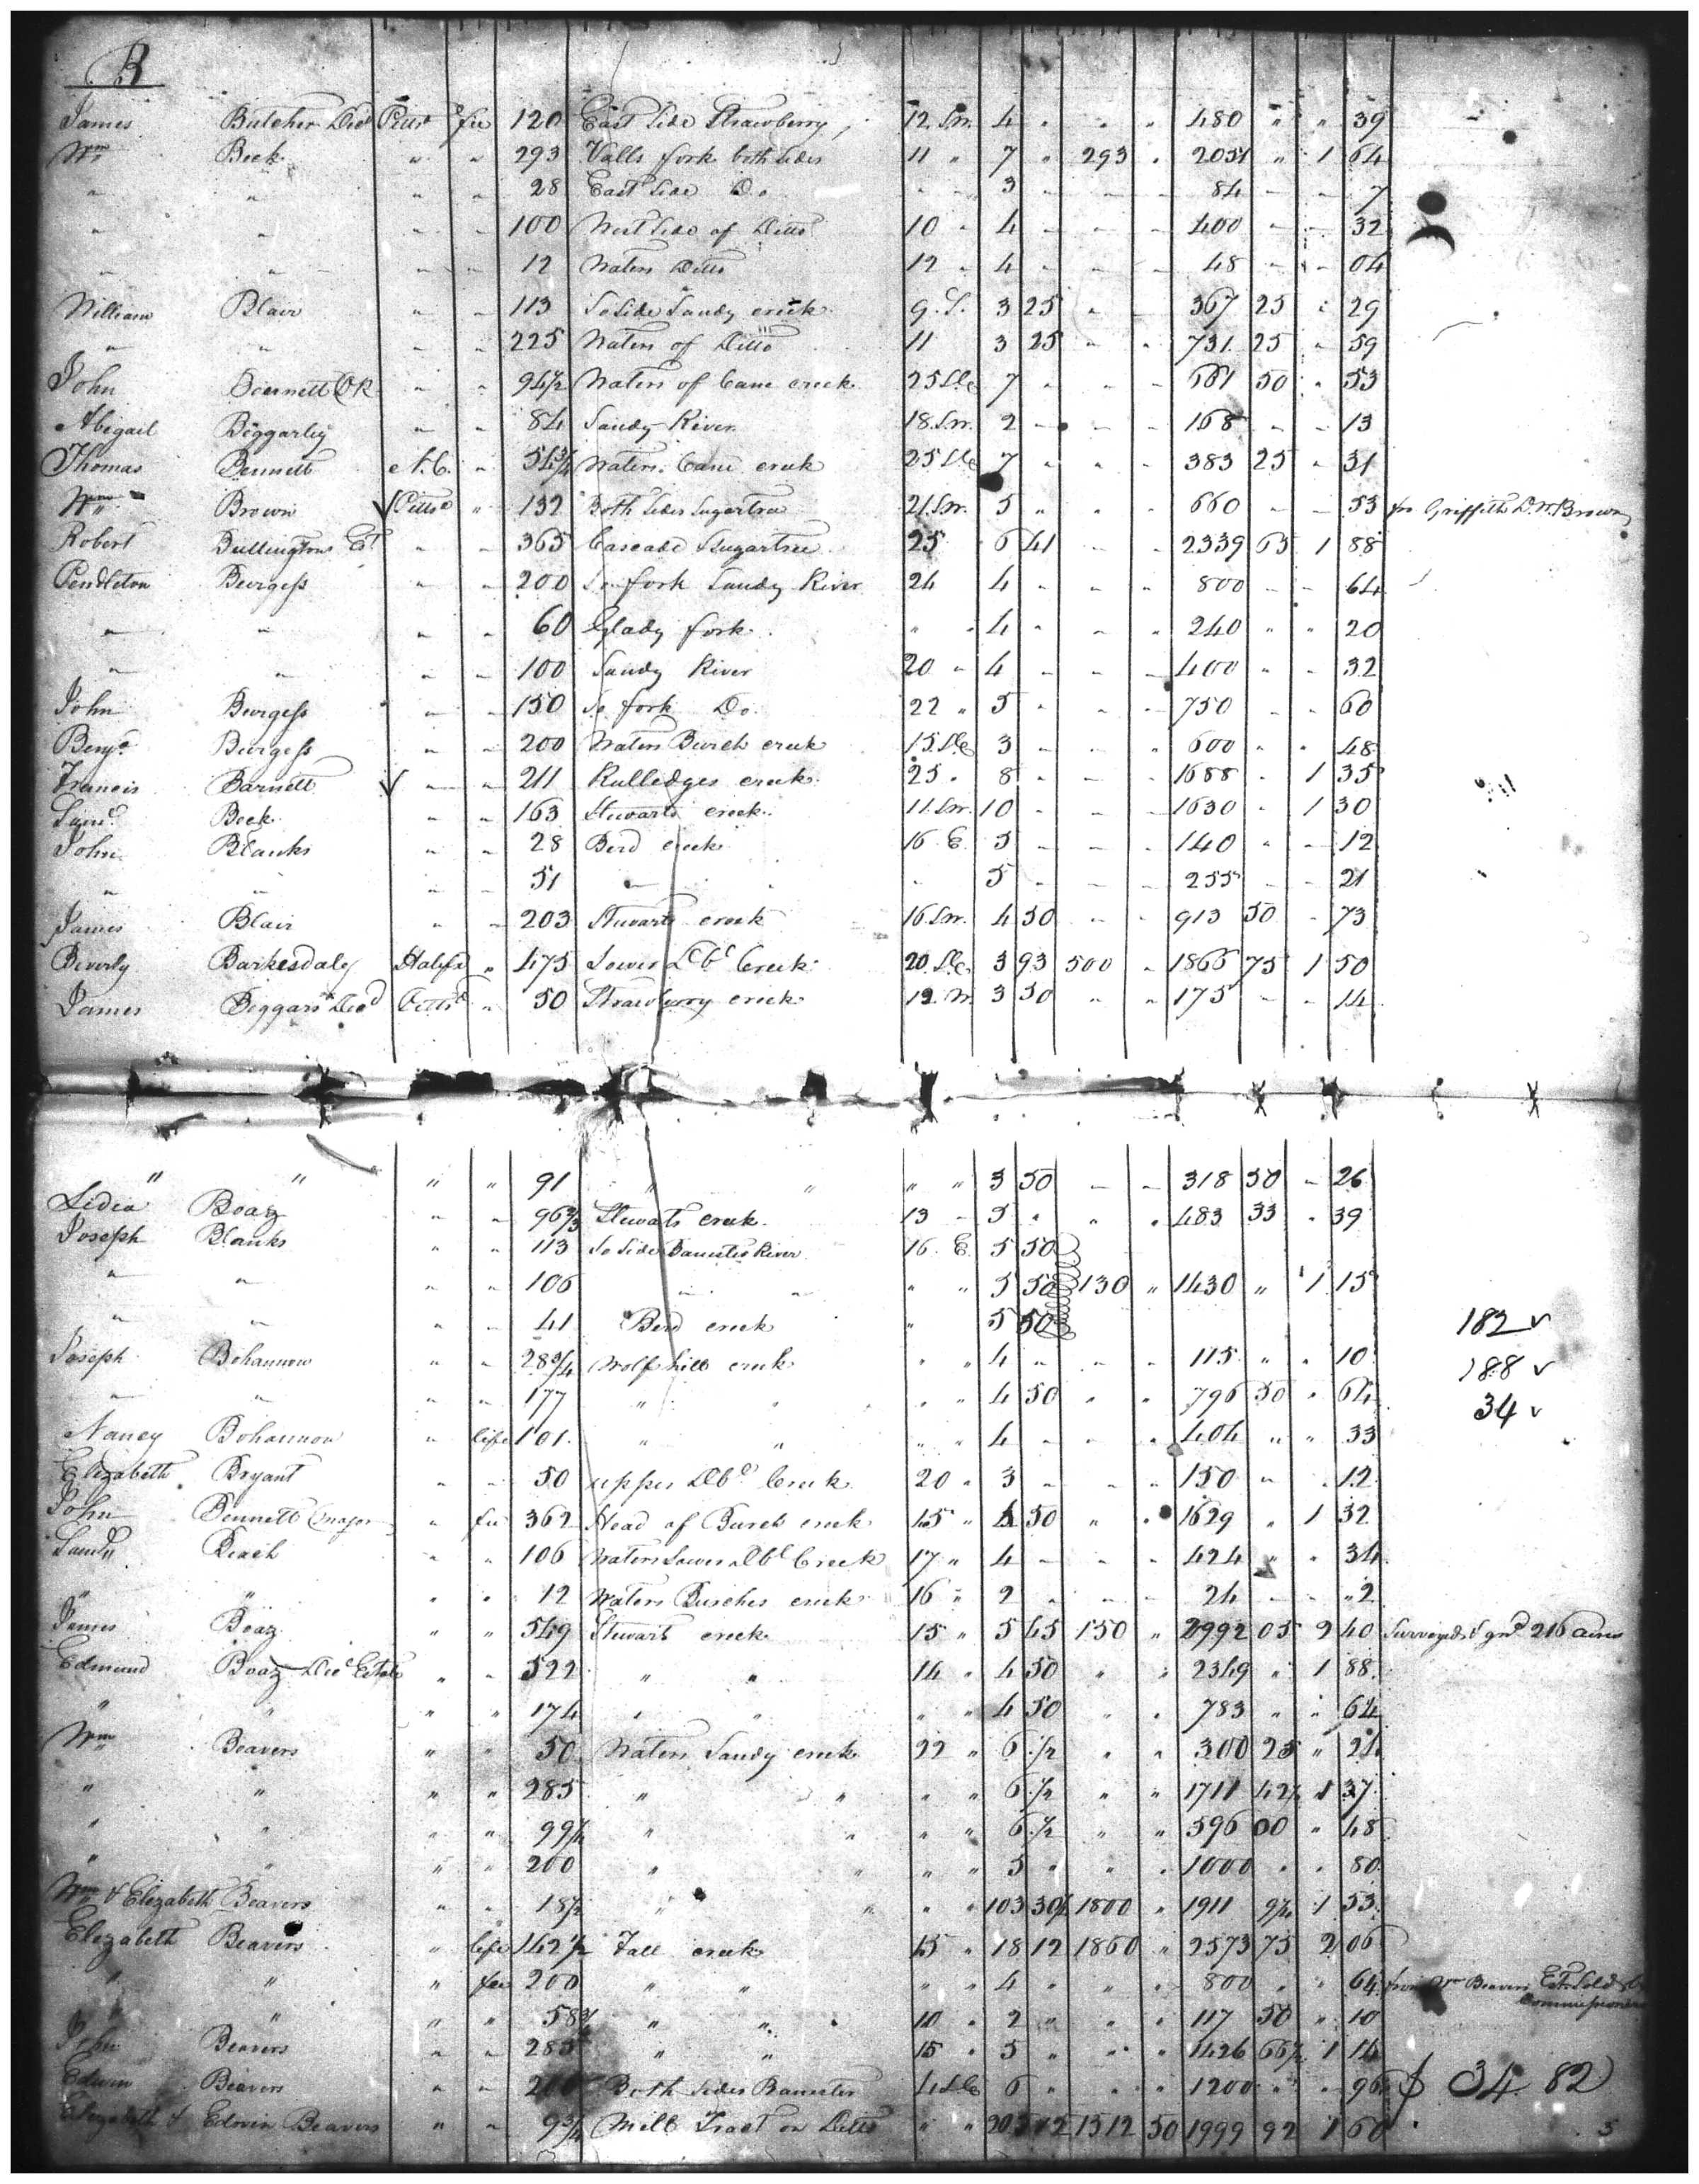 B
James Butcher Decd Pittsa fee 120 East Side Strawberry 12 Sw. 4 " " " 480 " " 39
Wm Beck " " 293 Valls fork both sides 11 " 7 " 293 " 2051 " 1 64
" " " " 28 East Side Do " " 3 – – – 84 – – 7
" " " " 100 West Side of Ditto 10 " 4 – – – 400 – – 32
" " " " 12 Waters Ditto 12 " 4 – – – 48 – – 04
William Blair " " 113 So Side Sandy creek 9. S. 3 25 " – 367 25 " 29
" " " " 225 Waters of Ditto 11 3 25 " " 731 25 " 59
John Bennett CK " " 94 1/2 Waters of Cane creek 25 S.E 7 " " " 661 50 " 53
Abigail Beggarley " " 84 Sandy River 18 Sw. 2 – – – 168 – – 13
Thomas Bennett N.C. " 54 3/4 Waters Cane creek 25 S.E 7 " " " 383 25 " 31
Wm Brown Pittsa " 132 Both Sides Sugartree 21 Sw. 5 " " " 660 – – 53 fro Griffith D. W. Brown
Robert Bullingtons Et " " 365 Cascade & Sugartree 25 6 41 – – 2339 65 1 88
Pendleton Burgess " " 200 So fork Sandy River 24 4 " " " 800 – – 64
" " " " 60 Glady fork " " 4 " " " 240 " " 20
" " " " 100 Sandy River 20 " 4 – – – 400 " " 32
John Burgess " " 150 So fork Do. 22 " 5 " " " 750 – – 60
Benja Burgess " " 200 Waters Burch creek 15 S.E 3 – – " 600 " " 48
Francis Barnett " " 211 Rutledges creek 25 " 8 " – – 1688 " 1 35
Saml Beck " " 163 Stewarts creek 11 Sw. 10 – – – 1630 " 1 30
John Blanks " " 28 Berd creek 16 E. 5 – – – 140 " – 12
" " " " 51 " " " 5 – – – 255 – – 21
James Blair " " 203 Stewarts creek 16 Sw. 4 50 " " 913 50 " 73
Beverly Barkesdaly Halifx " 475 Lower Dbl Creek 20 S.E 3 93 500 " 1866 75 1 50
James Beggars Decd Pittsa " 50 Strawberry creek 12. W. 3 50 " " 175 – " 14
" " " " 91 " " " " 3 50 – – 318 50 " 26
Lidia Boaz " " 96 2/3 Stewarts creek 13 – 5 " " " 483 33 " 39
Joseph Blanks " " 113 So Side Banister River 16 E. 5 50
" " " " 106 " " " " 5 50 130 " 1430 " 1 15
" " " " 41 Berd creek " 5 50
182 ✓
Joseph Bohannon " " 28 3/4 Wolf hill creek " " 4 " " " 115 " " 10
188 ✓
" " " " 177 " " " " 4 50 " " 796 50 " 64
34 ✓
Nancy Bohannon " life 101 " " " " 4 – – " 404 " " 33
Elizabeth Bryant " " 50 upper Dbl Creek 20 " 3 – " " 150 " " 12
John Bennett Major " fee 362 Head of Burch creek 15 " 4 50 " " 1629 " 1 32
Sandy Beach " " 106 Waters Lower Dbl Creek 17 " 4 – " " 424 " " 34
" " " " 12 Waters Burches creek 16 " 2 " – – 24 – – " 2
James Boaz " " 549 Stewarts creek 15 " 5 45 150 " 2992 05 2 40 Surveyed & gnd 216 acres
Edmund Boaz Decd Estate " " 522 " " 14 " 4 50 " " 2349 " 1 88
" " " " 174 " " " " 4 50 " " 783 " " 64
Wm Beavers " " 50 Waters Sandy creek 22 " 6 1/2 " " 300 25 " 24
" " " " 285 " " " " 6 1/2 " " 1711 42 1/2 1 37
" " " " 99 1/4 " " " " 6 1/2 " " 596 00 " 48
" " " " 200 " " " " 5 " " " 1000 " " 80
Wm & Elizabeth Beavers " " 18 1/2 " " " " 103 30 1/2 1800 " 1911 9 1/4 1 53
Elizabeth Beavers " life 142 1/2 Fall creek 15 " 18 12 1860 " 2573 75 2 06
" " " fee 200 " " " " 4 " " " 800 " " 64 from Wm Beavers Est Sold by
Commissioners
" " " " 58 3/4 " " 10 " 2 " " " 117 50 " 10
John Beavers " " 285 " " 15 " 5 " " " 1426 66 1/2 1 14
Edwin Beavers " " 200 Both Sides Banister 14 S.E 6 " " " 1200 " " 96 $ 34. 82
Elizabeth & Edwin Beavers " " 9 3/4 Mill Tract on Ditto " " 205 12 1512 50 1999 92 1 60
5